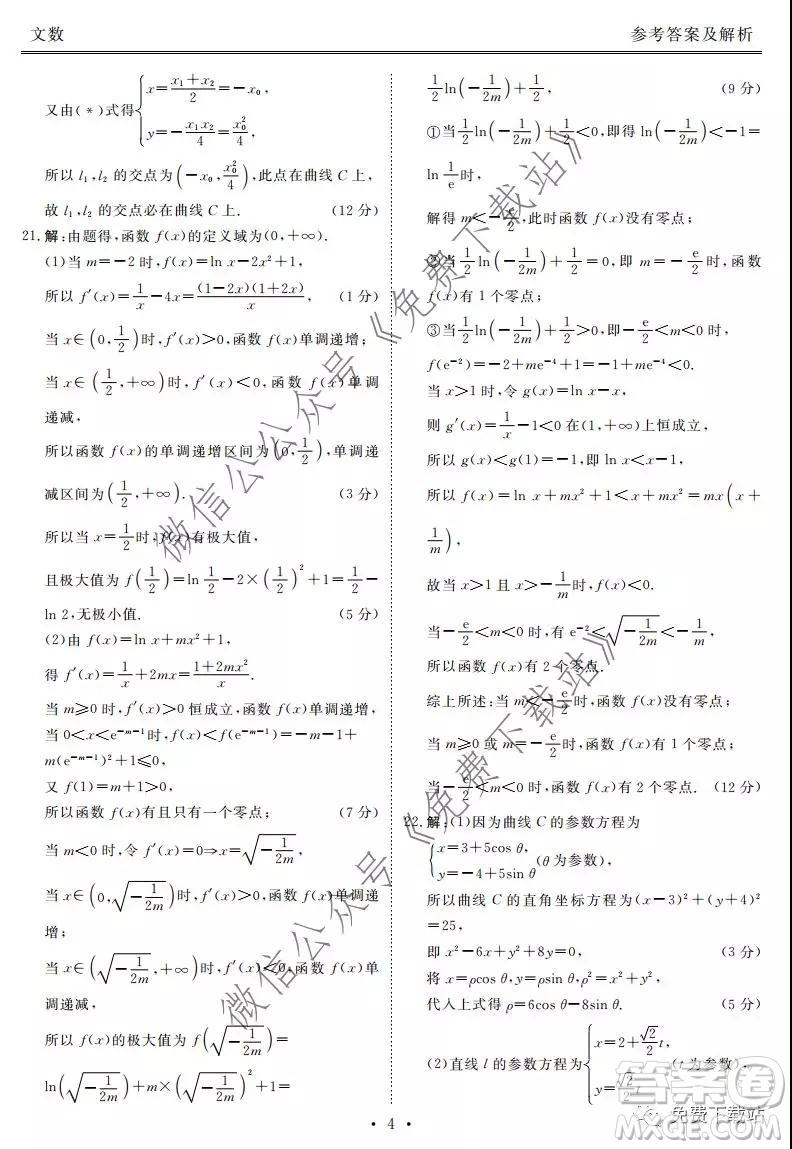 文数
参考答案及解析
又由(*)式得{x=(x₁+x₂)/2=-x₀,
y=-x₁x₂/4=x₀²/4,
所以 l₁,l₂ 的交点为(-x₀,x₀²/4),此点在曲线 C 上,
故 l₁,l₂ 的交点必在曲线 C 上. (12 分)
21.解:由题得,函数 f(x)的定义域为(0,+∞).
(1)当 m=-2 时,f(x)=ln x-2x²+1,
所以 f′(x)=1/x-4x=(1-2x)(1+2x)/x, (1 分)
当 x∈(0,1/2)时,f′(x)>0,函数 f(x)单调递增;
当 x∈(1/2,+∞)时,f′(x)<0,函数 f(x)单调
递减,
所以函数 f(x)的单调递增区间为(0,1/2),单调递
减区间为(1/2,+∞). (3 分)
所以当 x=1/2时,f(x)有极大值,
且极大值为 f(1/2)=ln 1/2-2×(1/2)²+1=1/2-
ln 2,无极小值. (5 分)
(2)由 f(x)=ln x+mx²+1,
得 f′(x)=1/x+2mx=(1+2mx²)/x.
当 m≥0 时,f′(x)>0 恒成立,函数 f(x)单调递增,
当 0<x<e⁻ᵐ⁻¹时,f(x)<f(e⁻ᵐ⁻¹)=-m-1+
m(e⁻ᵐ⁻¹)²+1≤0,
又 f(1)=m+1>0,
所以函数 f(x)有且只有一个零点; (7 分)
当 m<0 时,令 f′(x)=0⇒x=√(-1/2m),
当 x∈(0,√(-1/2m))时,f′(x)>0,函数 f(x)单调递
增;
当 x∈(√(-1/2m),+∞)时,f′(x)<0,函数 f(x)单
调递减,
所以 f(x)的极大值为 f(√(-1/2m))=
ln(√(-1/2m))+m×(√(-1/2m))²+1=
1/2ln(-1/2m)+1/2, (9 分)
①当1/2ln(-1/2m)+1/2<0,即得 ln(-1/2m)<-1=
ln 1/e时,
解得 m<-e/2,此时函数 f(x)没有零点;
②当1/2ln(-1/2m)+1/2=0,即 m=-e/2时,函数
f(x)有 1 个零点;
③当1/2ln(-1/2m)+1/2>0,即-e/2<m<0 时,
f(e⁻²)=-2+me⁻⁴+1=me⁻⁴-1<0.
当 x>1 时,令 g(x)=ln x-x,
则 g′(x)=1/x-1<0 在(1,+∞)上恒成立,
所以 g(x)<g(1)=-1,即 ln x<x-1,
所以 f(x)=ln x+mx²+1<x+mx²=mx(x+
1/m),
故当 x>1 且 x>-1/m时,f(x)<0.
当-e/2<m<0 时,有 e⁻²<√(-1/2m)<-1/m,
所以函数 f(x)有 2 个零点.
综上所述:当 m<-e/2时,函数 f(x)没有零点;
当 m≥0 或 m=-e/2时,函数 f(x)有 1 个零点;
当-e/2<m<0 时,函数 f(x)有 2 个零点. (12 分)
22.解:(1)因为曲线 C 的参数方程为
{x=3+5cos θ,
y=-4+5sin θ (θ 为参数),
所以曲线 C 的直角坐标方程为(x-3)²+(y+4)²
=25,
即 x²-6x+y²+8y=0. (3 分)
将 x=ρcos θ,y=ρsin θ,ρ²=x²+y²
代入上式得 ρ=6cos θ-8sin θ. (5 分)
(2)直线 l 的参数方程为{x=2+(√2/2)t,
y=(√2/2)t (t 为参数),
· 4 ·
微信公众号《免费下载站》
微信公众号《免费下载站》
答案圈
MXQE.COM
免费下载站